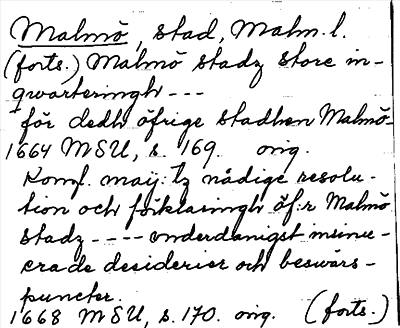 Malmö, stad, Malm. l.
(forts.) Malmö stadz store in-
qwarteringh ---
för dedh öfrige stadhen Malmö-
1664 MSU, s. 169. orig.
Konf. maij:tz nådige resolu-
tion och förklaringh öf:r Malmö
stadz ---- underdånigst insinu-
erade desiderier och beswärs-
puncter.
1668 MSU, s. 170. orig. (forts.)